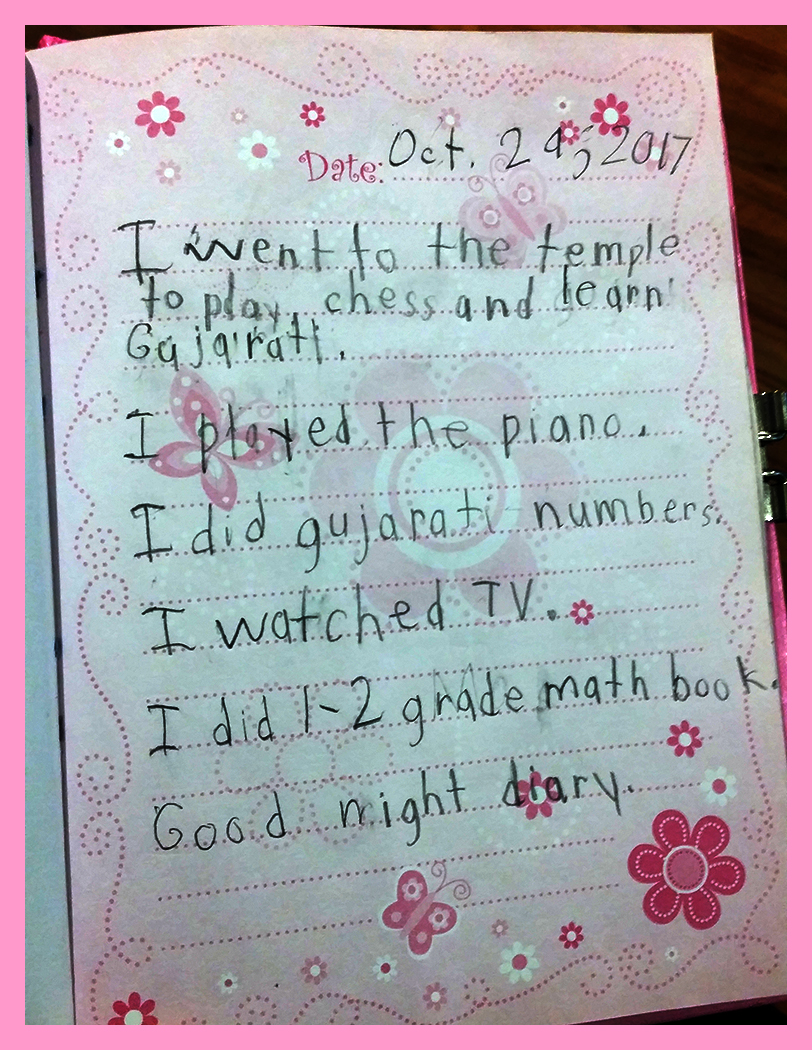 Date: Oct. 29, 2017
I went to the temple
to play, chess and learn
Gujarati.
I played the piano.
I did gujarati numbers.
I watched TV.
I did 1-2 grade math book.
Good night diary.